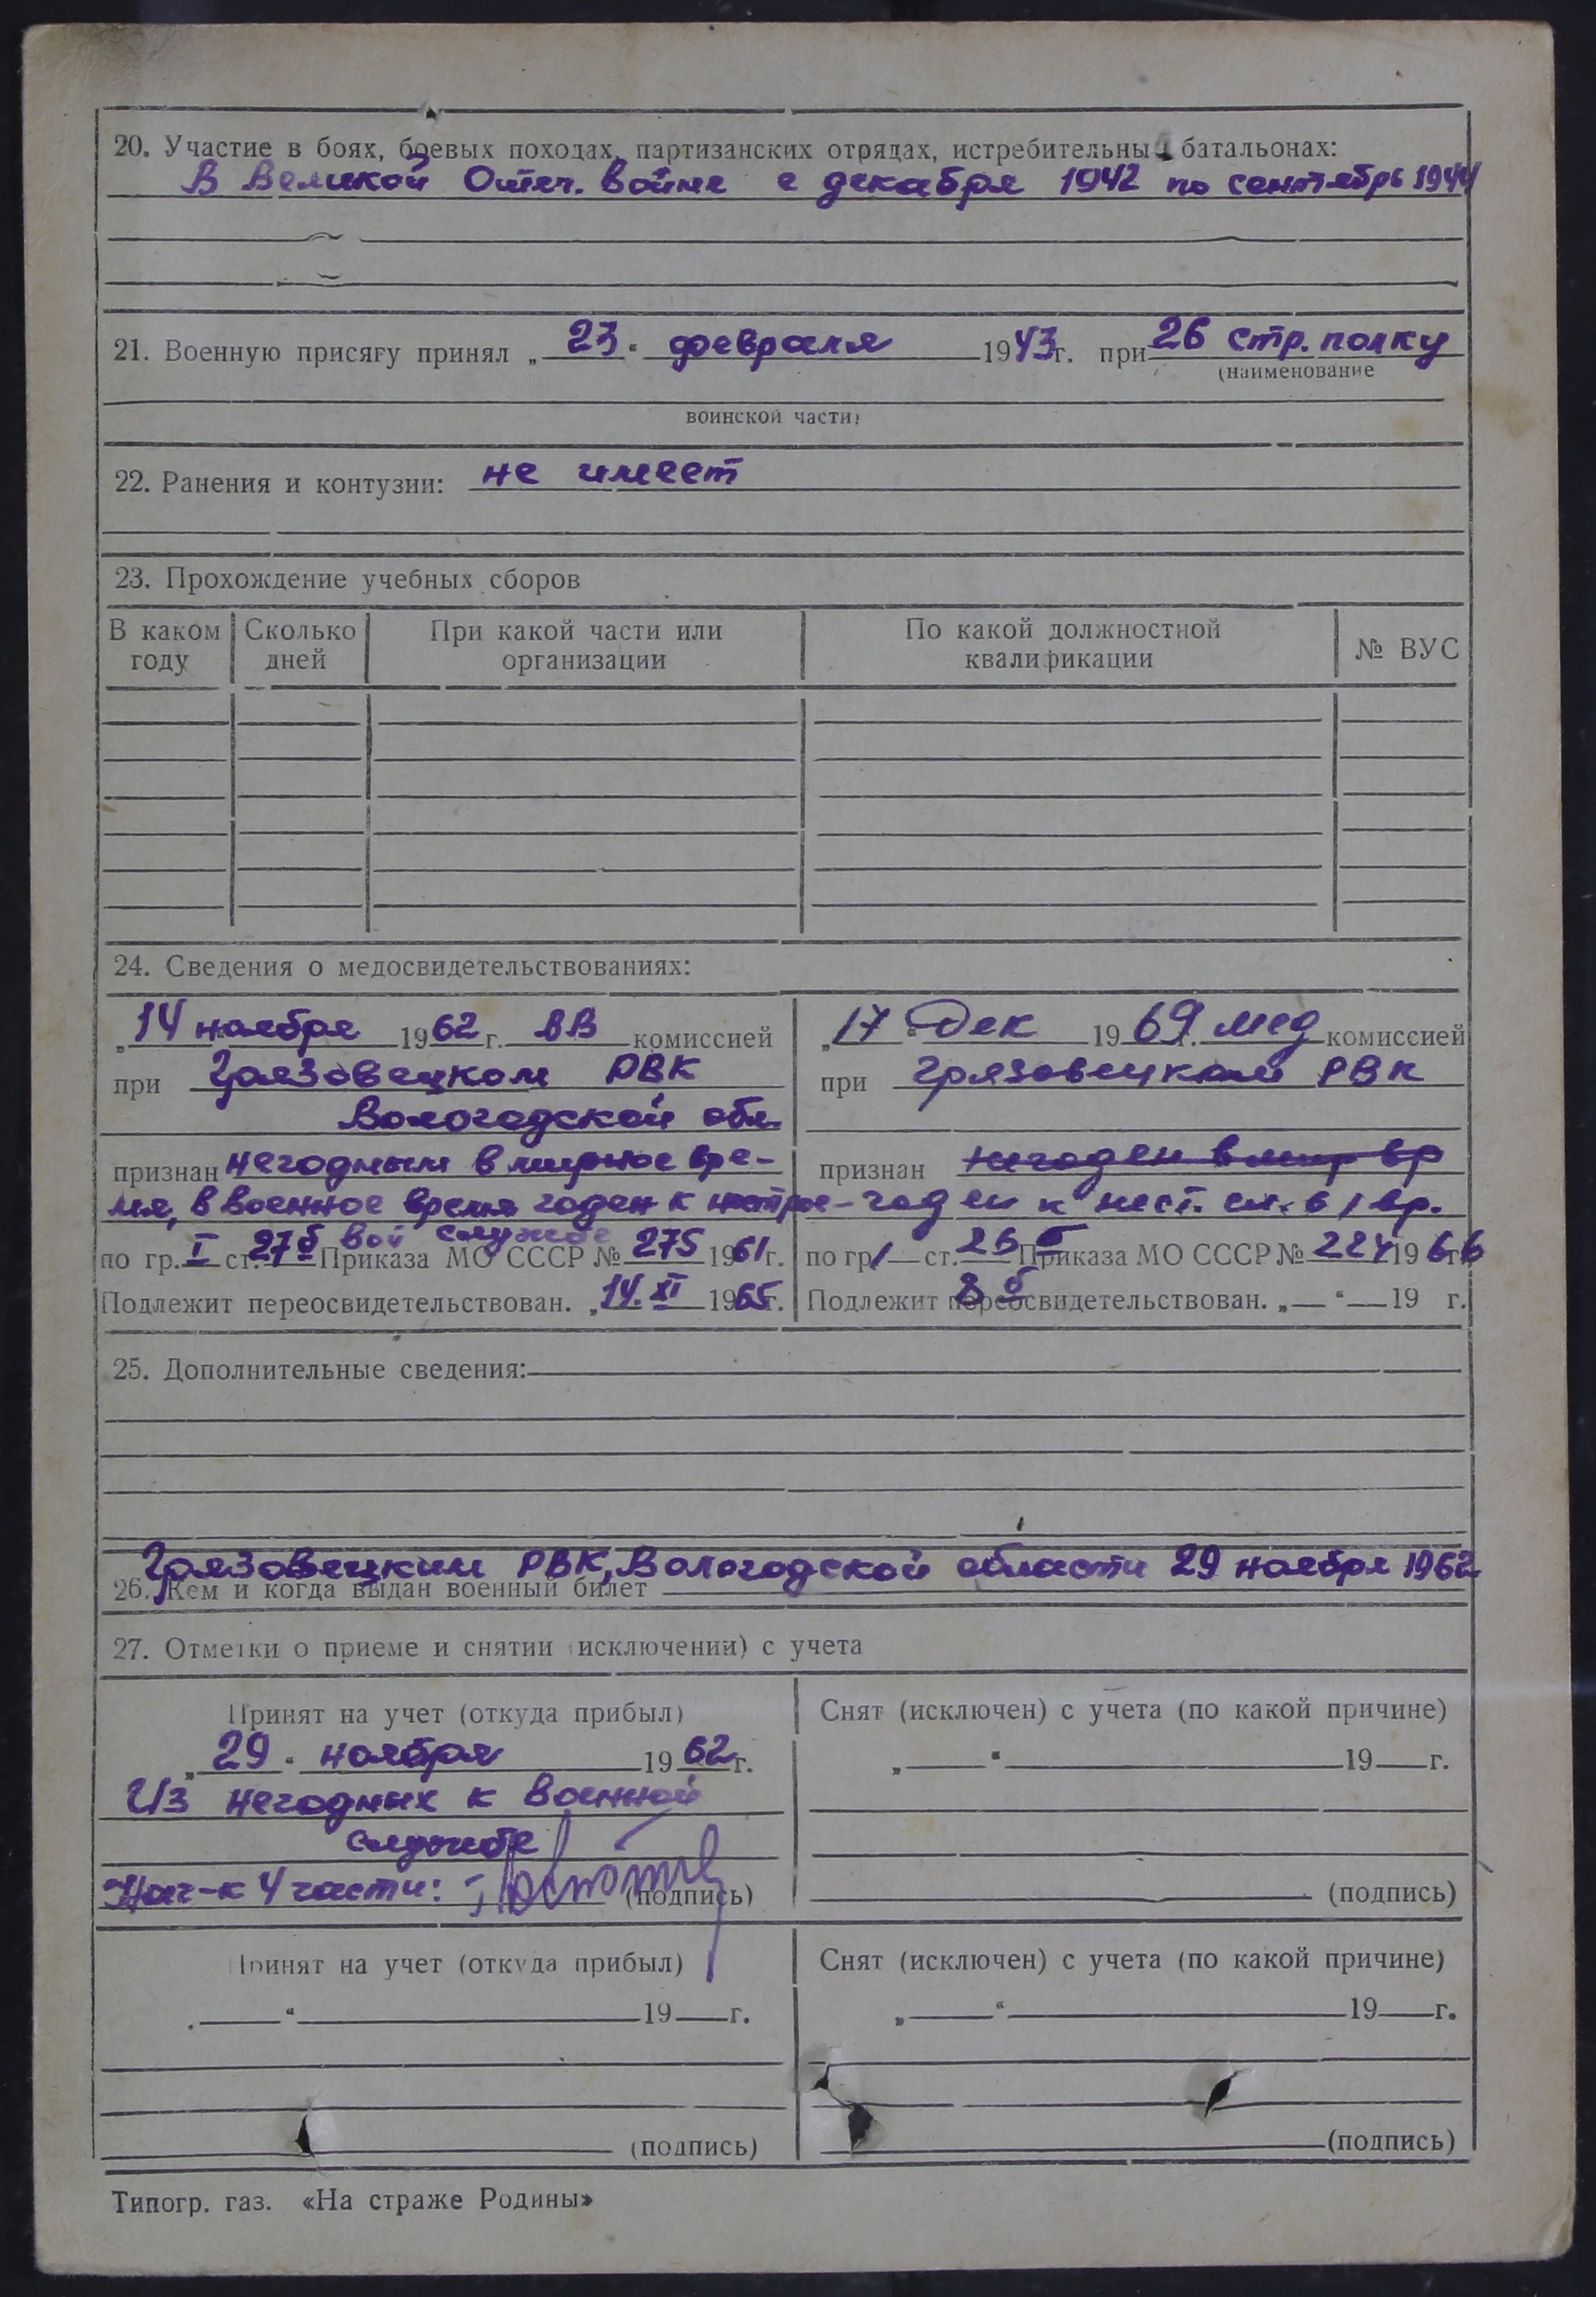 20. Участие в боях, боевых походах, партизанских отрядах, истребительных батальонах:
В Великой Отеч. войне с декабря 1942 по сентябрь 1944
21. Военную присягу принял „23“ февраля 1943г. при 26 стр. полку
(наименование
воинской части)
22. Ранения и контузии: не имеет
23. Прохождение учебных сборов
В каком году
Сколько дней
При какой части или организации
По какой должностной квалификации
№ ВУС
24. Сведения о медосвидетельствованиях:
„14 ноября 1962 г. ВВ комиссией
при Грязовецком РВК
Вологодской обл.
признан негодным в мирное вре-
мя, в военное время годен к нестрое-
вой службе
по гр. I ст. 27б Приказа МО СССР № 275 1961г.
Подлежит переосвидетельствован. „14. XI 1965г.
„17“ Дек 1969г. мед комиссией
при Грязовецком РВК
признан негоден в мир вр
годен к нест. сл. в/вр.
по гр 1 ст. 26 б Приказа МО СССР № 224 1966г
8 б
Подлежит переосвидетельствован. „—“—19 г.
25. Дополнительные сведения:
Грязовецким РВК, Вологодской области 29 ноября 1962
26. Кем и когда выдан военный билет
27. Отметки о приеме и снятии (исключении) с учета
Принят на учет (откуда прибыл)
„29“ ноября 1962г.
Из негодных к военной
службе
Нач-к 4 части: (подпись)
Снят (исключен) с учета (по какой причине)
„—“—19—г.
(подпись)
Принят на учет (откуда прибыл)
„—“—19—г.
(подпись)
Снят (исключен) с учета (по какой причине)
„—“—19—г.
(подпись)
Типогр. газ. «На страже Родины»